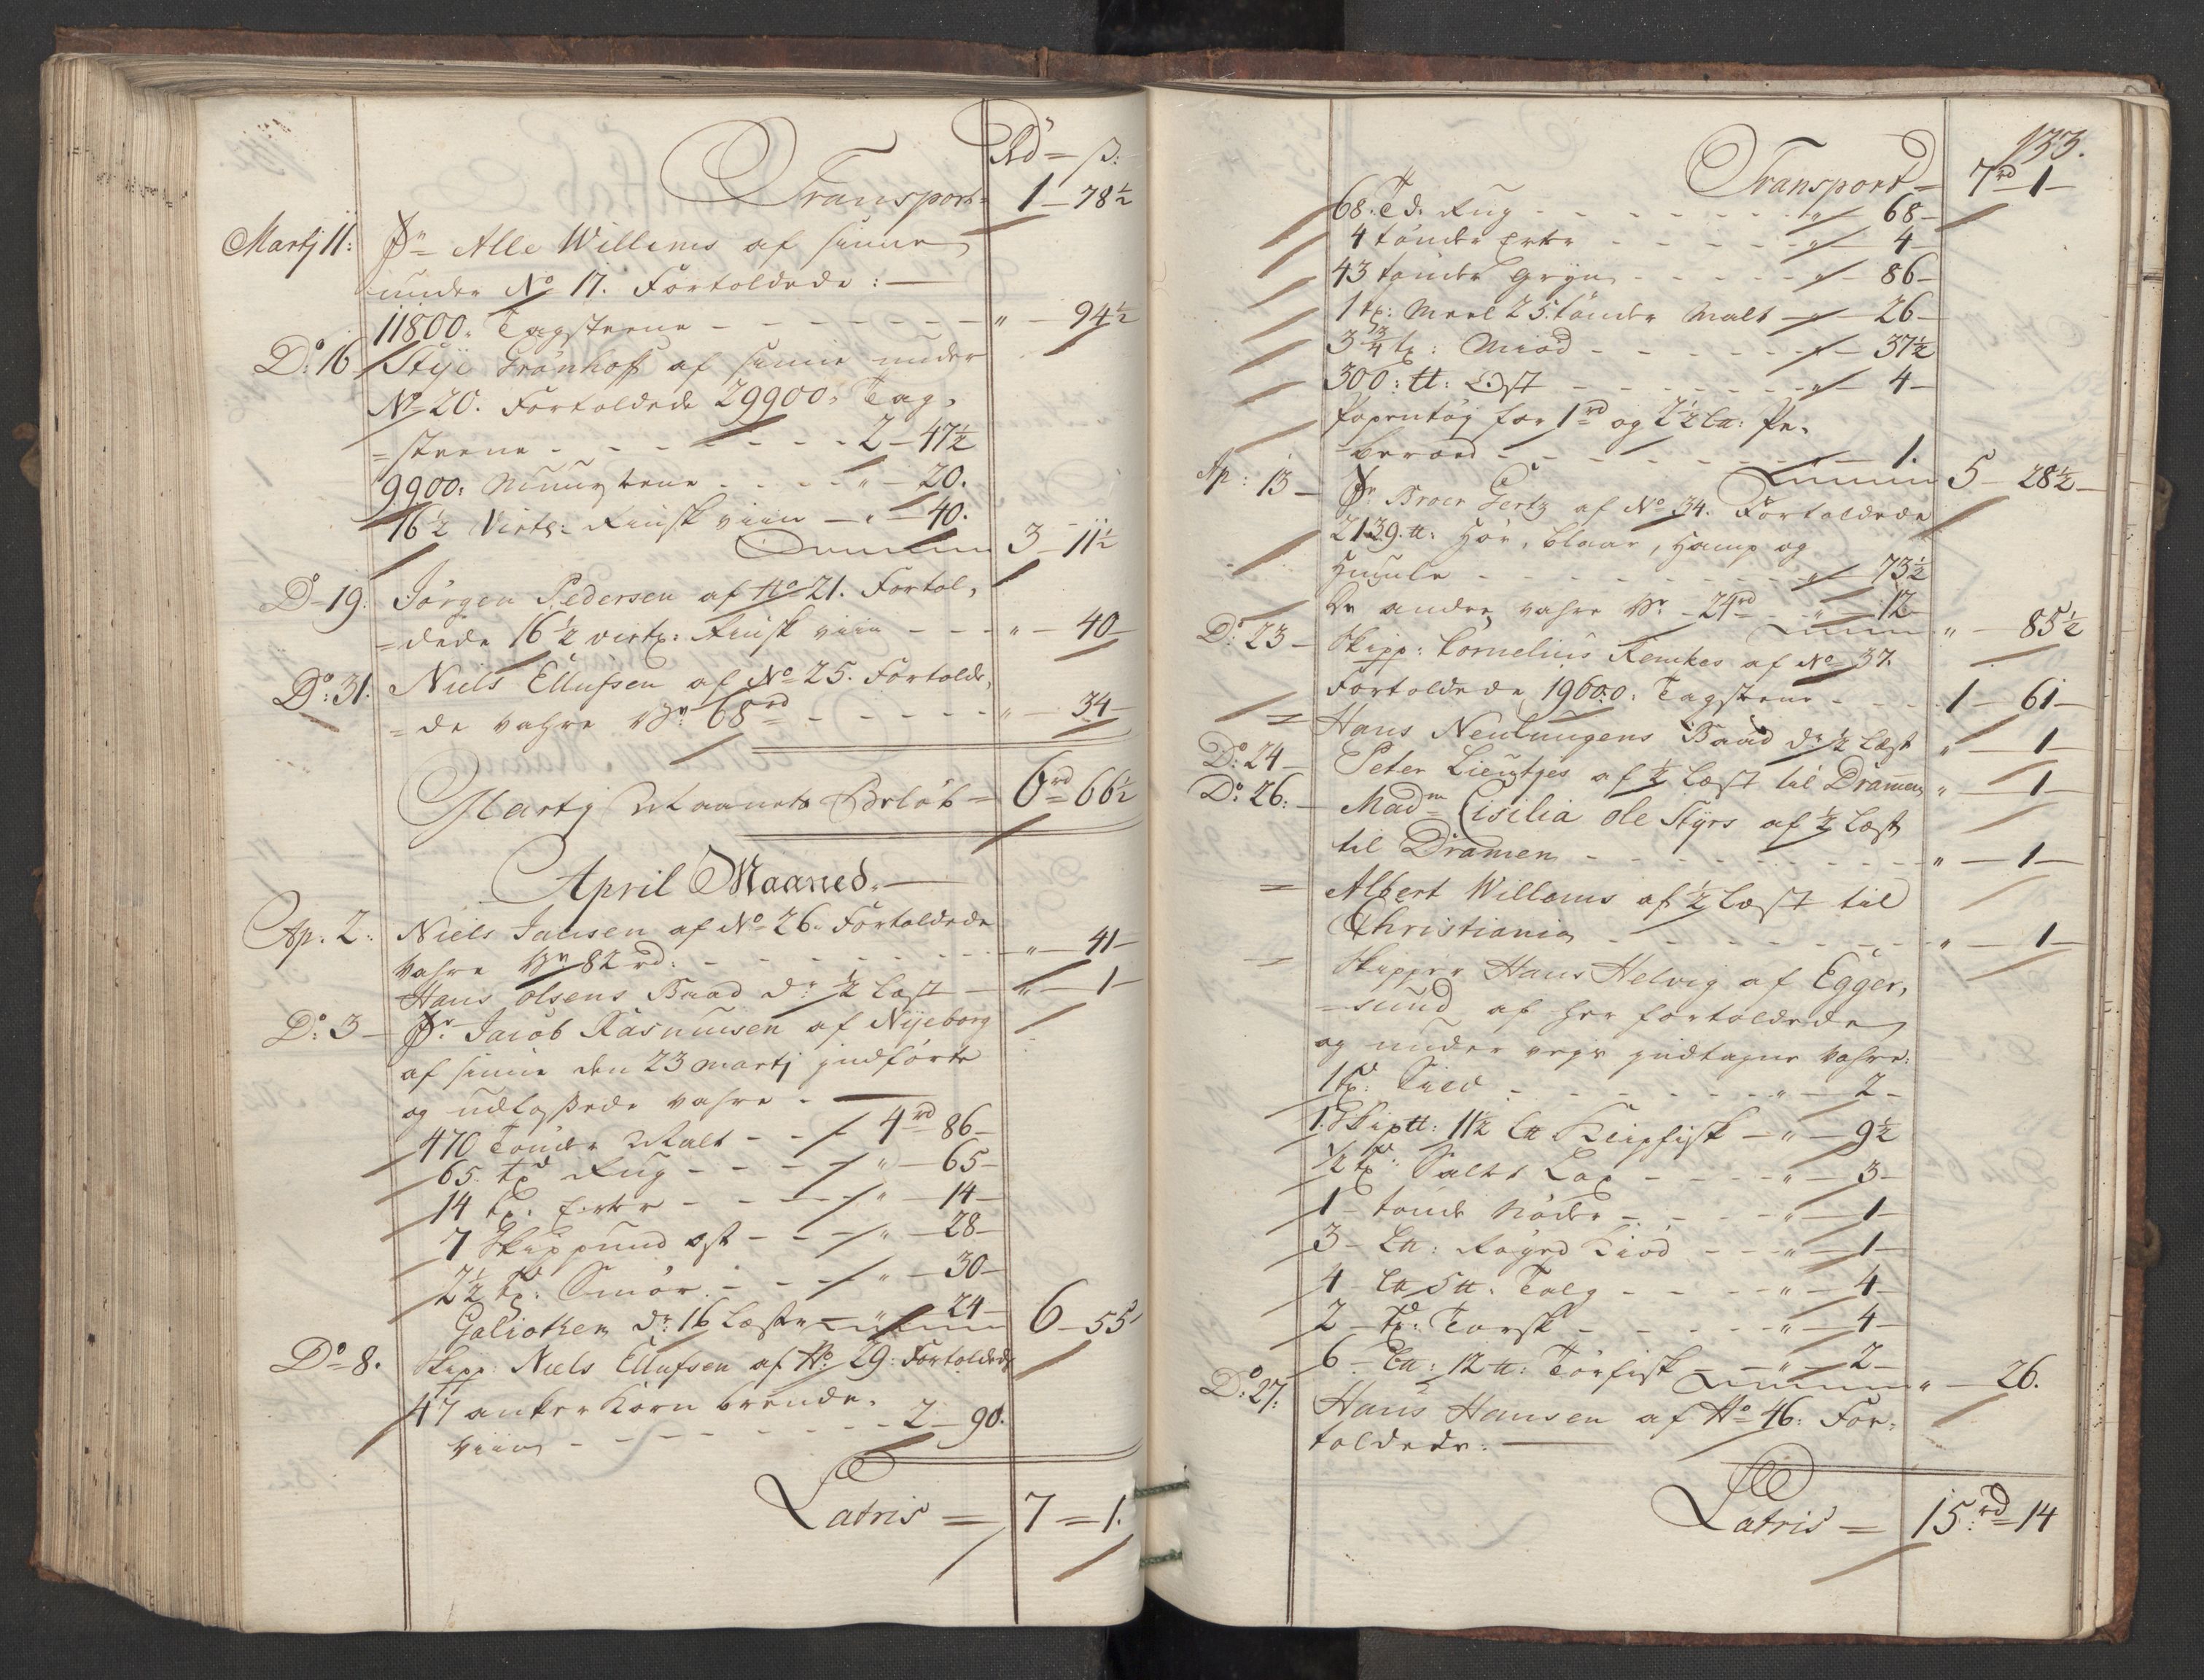 Rd = ß:
Transport = 1 – 78½
Martj 11: Sr Alle Willems af sinne
under No 17. Fortoldede: —
11800. Tagsteene – – – – – " – 94½
Do: 16 Stije Grönhoff af sinne under
No 20. Fortoldede 29900. Tag,
= steene – – – – – 2 – 47½
9900: Muursteene – – – " – 20.
16½ Virtl: Rinsk viin – " – 40.
Summa 3 – 11½
Do – 19: Jörgen Pedersen af No 21. Fortol,
= dede 16½ virtl: Rinsk viin – – – " – 40 –
Do: 31. Niels Ellufsen af No 25. Fortolde,
= de vahre pr 68 rd – – – – – " – 34 –
Martj Maanets Beløb = 6 rd 66½
April Maaned. —
Ap. 2: Niels Jansen af No 26. Fortoldede
vahre pr 82 rd: – – – – – " – 41 –
Hans Olsens Baad dr: ½ læst – " – 1 –
Do: 3 – Sr Jacob Rasmusen af Nyeborg
af sinne den 23 martj indförte
og udlossede vahre . —
470 Tönder Malt – – – 4 rd 86 –
65. td Rug – – – – " – 65 –
14 td: Erter – – – – " – 14 –
7 Skippund ost – – – " – 28 –
2½ td: Smör – – – " – 30 –
Galiothen dr: 16 læster – " – 24 –
Summa 6 – 55
Do = 8. Skipp: Niels Ellufsen af No 29: Fortoldede
47 anker Korn brende,
viin – – – – – – – 2 – 90.
Latris = 7 = 1.
133.
Transport = 7 rd 1 –
68. Td. Rug – – – – – " – 68 –
4 tönder Erter – – – – – " – 4 –
43 tönder gryn – – – – – " – 86 –
1 td: Meel 25 tönder Malt – " – 26 –
3¾ td: Miöd – – – – – " – 37½
300: tt: Ost – – – – – " – 4 –
for 1 rd og 2½ Ltt:
– – – – – 1.
Summa 5 – 28½ –
Ap: 13 – Sr Broer Gertz af No 34. Fortoldede
2139. tt: Hör, blaar, Hamp og
Humle – – – – – " – 73½
De andre vahre pr: 24 rd – " – 12 –
Summa " – 85½
Do: 23 – Skipp: Cornelius Remkes af No 37.
Fortoldede 19600: Tagsteene – – – 1 – 61 –
= Hans Neulungens Baad dr ½ læst " – 1 –
Do: 24 – Peter Lieutjes af ½ Læst til Dramen " – 1 –
Do: 26: – Madm Cisilia ole Styrs af ½ læst
til Dramen – – – – – – – " – 1 –
= Albert Willems af ½ læst til
Christiania – – – – – – – " – 1 –
= Skipper Hans Helvig af Egger,
= sund af her fortoldede
og under vejs indtagne vahre:
1 td: Sild – – – – – " – 2 –
1. Skiptt: 11½ Ltt Klipfisk – " – 9½
½ td Saltet Lax – – – – " – 3 –
1 – tönde Nöder – – – – " – 1 –
3 – Ltt: Röged Kiöd – – – " – 1 –
4 – Ltt 5 tt: Talg – – – " – 4 –
2 – td: Torsk – – – – " – 4 –
6 – Ltt: 12 tt: Törfisk – – " – 2 –
Summa " – 26.
Do: 27: Hans Hansen af No 46: For,
toldede: —
Latris = 15 rd = 14